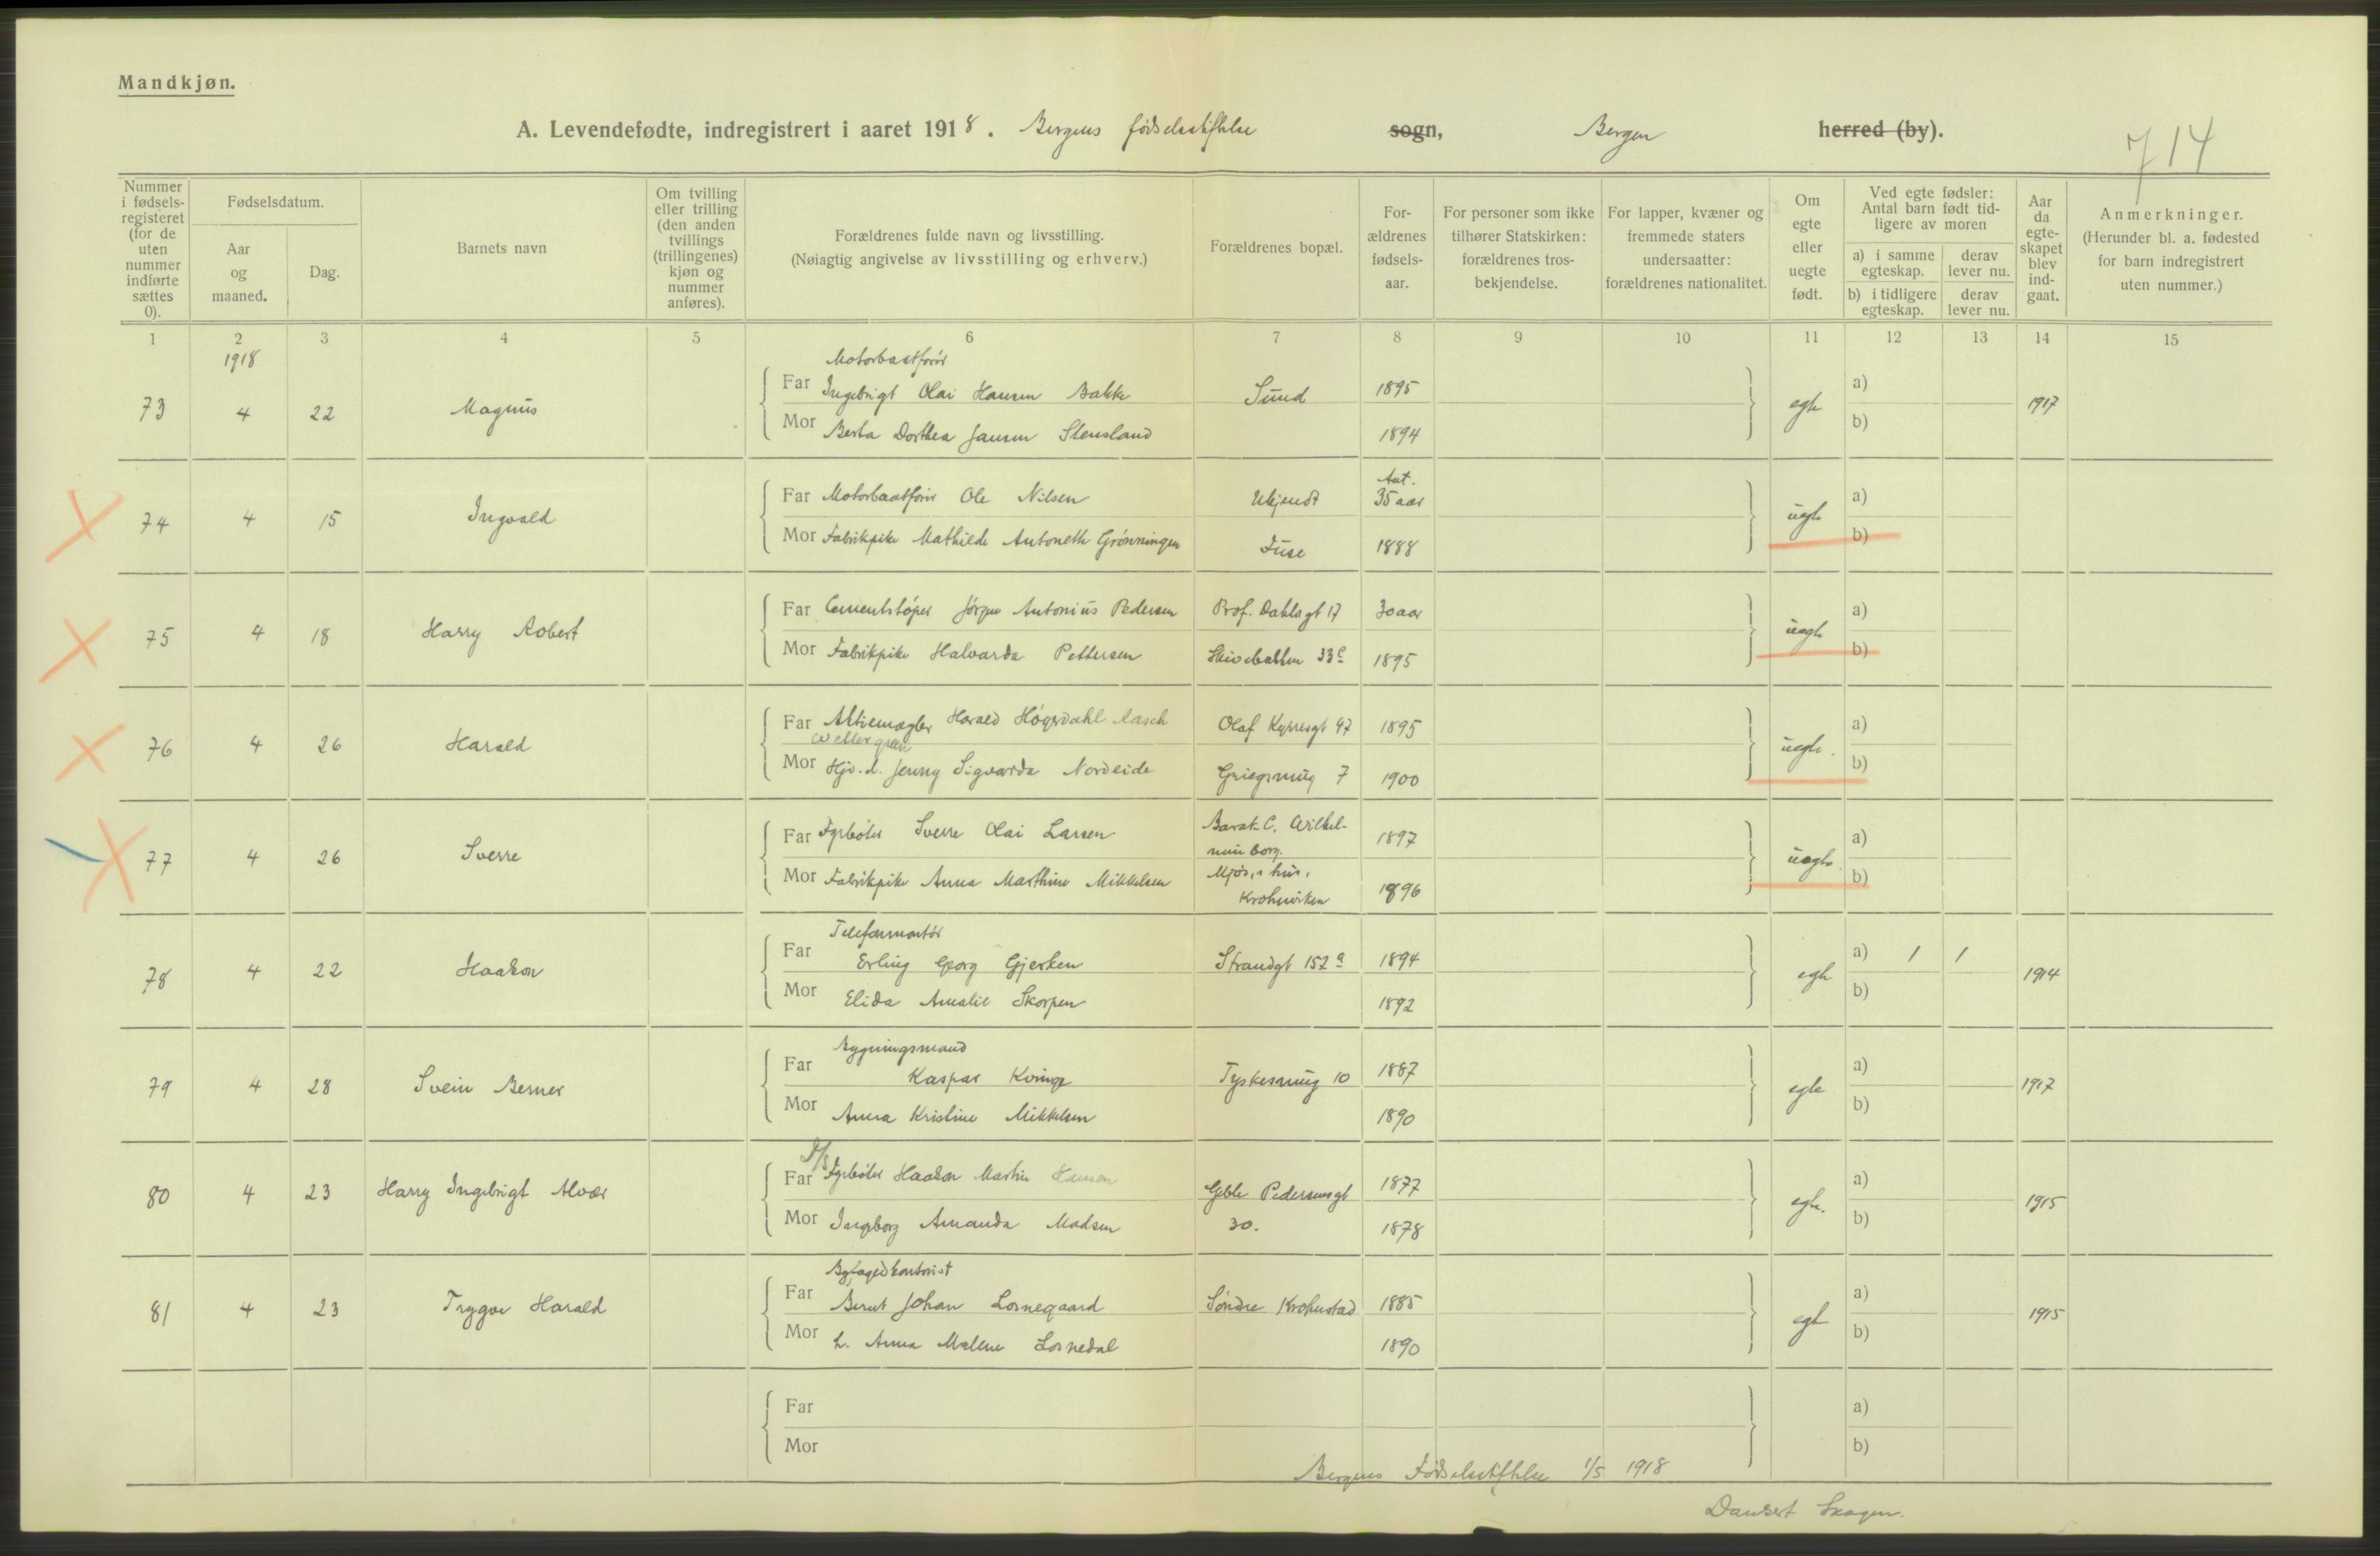 Mandkjøn.
A. Levendefødte, indregistrert i aaret 1918. Bergens fødselsstiftelse sogn, Bergen herred (by).
714
Nummer i fødselsregisteret (for de uten nummer indførte sættes 0).
Fødselsdatum.
Aar og maaned.
Dag.
Barnets navn
Om tvilling eller trilling (den anden tvillings (trillingenes) kjøn og nummer anføres).
Forældrenes fulde navn og livsstilling.
(Nøiagtig angivelse av livsstilling og erhverv.)
Forældrenes bopæl.
For-ældrenes fødsels-aar.
For personer som ikke tilhører Statskirken: forældrenes tros-bekjendelse.
For lapper, kvæner og fremmede staters undersaatter: forældrenes nationalitet.
Om egte eller uegte født.
Ved egte fødsler: Antal barn født tid-ligere av moren
a) i samme egteskap.
derav lever nu.
b) i tidligere egteskap.
derav lever nu.
Aar da egte-skapet blev ind-gaat.
Anmerkninger.
(Herunder bl. a. fødested for barn indregistrert uten nummer.)
1 2 3 4 5 6 7 8 9 10 11 12 13 14 15
1918
Motorbaatfører
73 4 22 Magnus Far Ingebrigt Olai Hansen Bakke Sund 1895 egte a) 1917
Mor Berta Dorthea Jansen Stensland 1894 b)
Ant.
74 4 15 Ingvald Far Motorbaatfører Ole Nilsen Ukjendt 35 aar uegte a)
Mor Fabrikpike Mathilde Antonette Grønningen Fuse 1888 b)
75 4 18 Harry Robert Far Cementstøper Jørgen Antonius Pedersen Prof. Dahlsgt 17 30 aar uegte a)
Mor Fabrikpike Halvarda Pettersen Skivebakken 33c 1895 b)
76 4 26 Harald Far Aktiemægler Harald Høyerdahl Aasch Olaf Kyrresgt 47 1895 uegte. a)
Wettergreen
Mor Hjv. d. Jenny Sigvarda Nordeide Griegsmug 7 1900 b)
77 4 26 Sverre Far Fyrbøter Sverre Olai Larsen Barak C. Wilhel-minborg. 1897 uegte. a)
Mor Fabrikpike Anna Marthine Mikkelsen Mjøs,s hus, Krohnviken 1896 b)
Telefonmontør
78 4 22 Haakon Far Erling Georg Gjerken Strandgt 152a 1894 egte a) 1 1 1914
Mor Elida Amalie Skorpen 1892 b)
Bygningsmand
79 4 28 Svein Berner Far Kaspar Kvinge Tyskesmug 10 1887 egte a) 1917
Mor Anna Kristine Mikkelsen 1890 b)
80 4 23 Harry Ingebrigt Alvær Far D/S Fyrbøter Haakon Martin Hansen Geble Pedersensgt 30. 1877 egte. a) 1915
Mor Ingeborg Amanda Madsen 1878 b)
81 4 23 Trygve Harald Far Berent Johan Losnegaard Søndre Krohnstad 1885 egte a) 1915
Mor h. Anna Malene Losnedal 1890 b)
Far a)
Mor b)
Bergens Fødselsstiftelse 1/5 1918
Skagen.